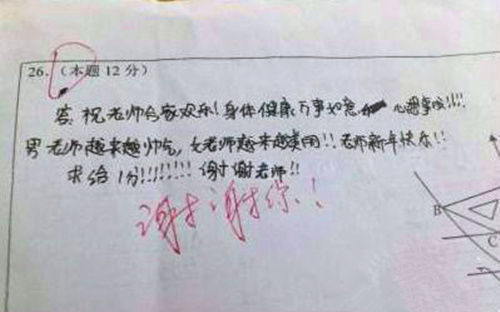 26.（本题12分）
答: 祝老师合家欢乐!身体健康 万事如意 心想事成!!!!
男老师越来越帅气,女老师越来越美丽!!老师新年快乐!!
求给1分!!!!!!!!谢谢老师!!
谢谢你!!
B
C